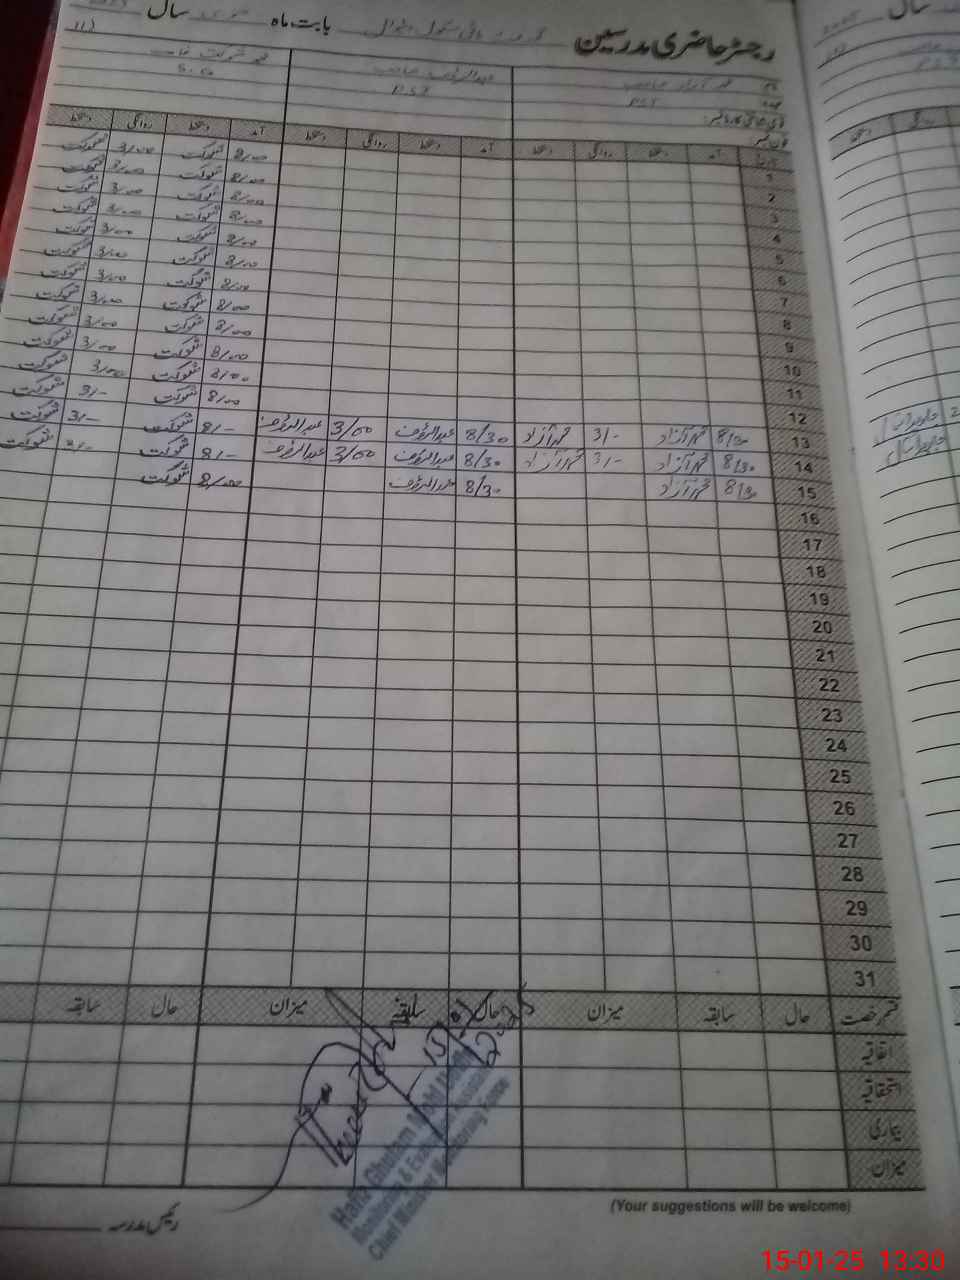 رجسٹر حاضری مدرسین ہائی سکول بابت ماہ جنوری سال
نام محمد آزاد صاحب
عہدہ PST
عبدالرؤف صاحب
PST
محمد شوکت
S.G
شناختی کارڈ نمبر:
فون نمبر
تاریخ آمد دستخط روانگی دستخط آمد دستخط روانگی دستخط آمد دستخط روانگی دستخط
1 8/00 شوکت 3/00 شوکت
2 8/00 شوکت 3/00 شوکت
3 8/00 شوکت 3/00 شوکت
4 8/00 شوکت 3/00 شوکت
5 8/00 شوکت 3/00 شوکت
6 8/00 شوکت 3/00 شوکت
7 8/00 شوکت 3/00 شوکت
8 8/00 شوکت 3/00 شوکت
9 8/00 شوکت 3/00 شوکت
10 8/00 شوکت 3/00 شوکت
11 8/00 شوکت 3/00 شوکت
12 8/00 شوکت 3/- شوکت
13 8/30 محمد آزاد 3/- محمد آزاد 8/30 عبدالرؤف 3/00 عبدالرؤف 8/- شوکت 3/- شوکت
14 8/30 محمد آزاد 3/- محمد آزاد 8/30 عبدالرؤف 3/00 عبدالرؤف 8/- شوکت 3/- شوکت
15 8/30 محمد آزاد 8/30 عبدالرؤف 8/00 شوکت
16
17
18
19
20
21
22
23
24
25
26
27
28
29
30
31
قسم رخصت حال سابقہ میزان حال سابقہ میزان حال سابقہ
اتفاقیہ
استحقاقیہ
بیماری
میزان
15
2025
Hafiz Ghulam Mohi Uddin
Monitoring & Evaluation Assistant
Chief Minister Monitoring Force
(Your suggestions will be welcome)
رئیس مدرسہ
15-01-25 13:30